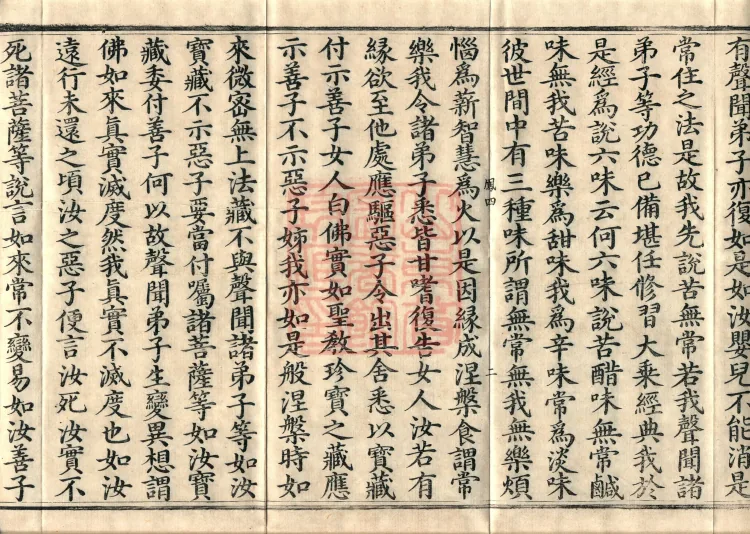 有聲聞弟子亦復如是如汝嬰兒不能消是
常住之法是故我先說苦無常若我聲聞諸
弟子等功德已備堪任修習大乘經典我於
是經爲說六味云何六味說苦醋味無常鹹
味無我苦味樂爲甜味我爲辛味常爲淡味
彼世間中有三種味所謂無常無我無樂煩
鳳四
二
惱爲薪智慧爲火以是因緣成涅槃食謂常
樂我令諸弟子悉皆甘嗜復告女人汝若有
緣欲至他處應驅惡子令出其舍悉以寶藏
付示善子女人白佛實如聖教珍寶之藏應
示善子不示惡子姊我亦如是般涅槃時如
來微密無上法藏不與聲聞諸弟子等如汝
寶藏不示惡子要當付囑諸菩薩等如汝寶
藏委付善子何以故聲聞弟子生變異想謂
佛如來眞實滅度然我眞實不滅度也如汝
遠行未還之頃汝之惡子便言汝死汝實不
死諸菩薩等說言如來常不變易如汝善子